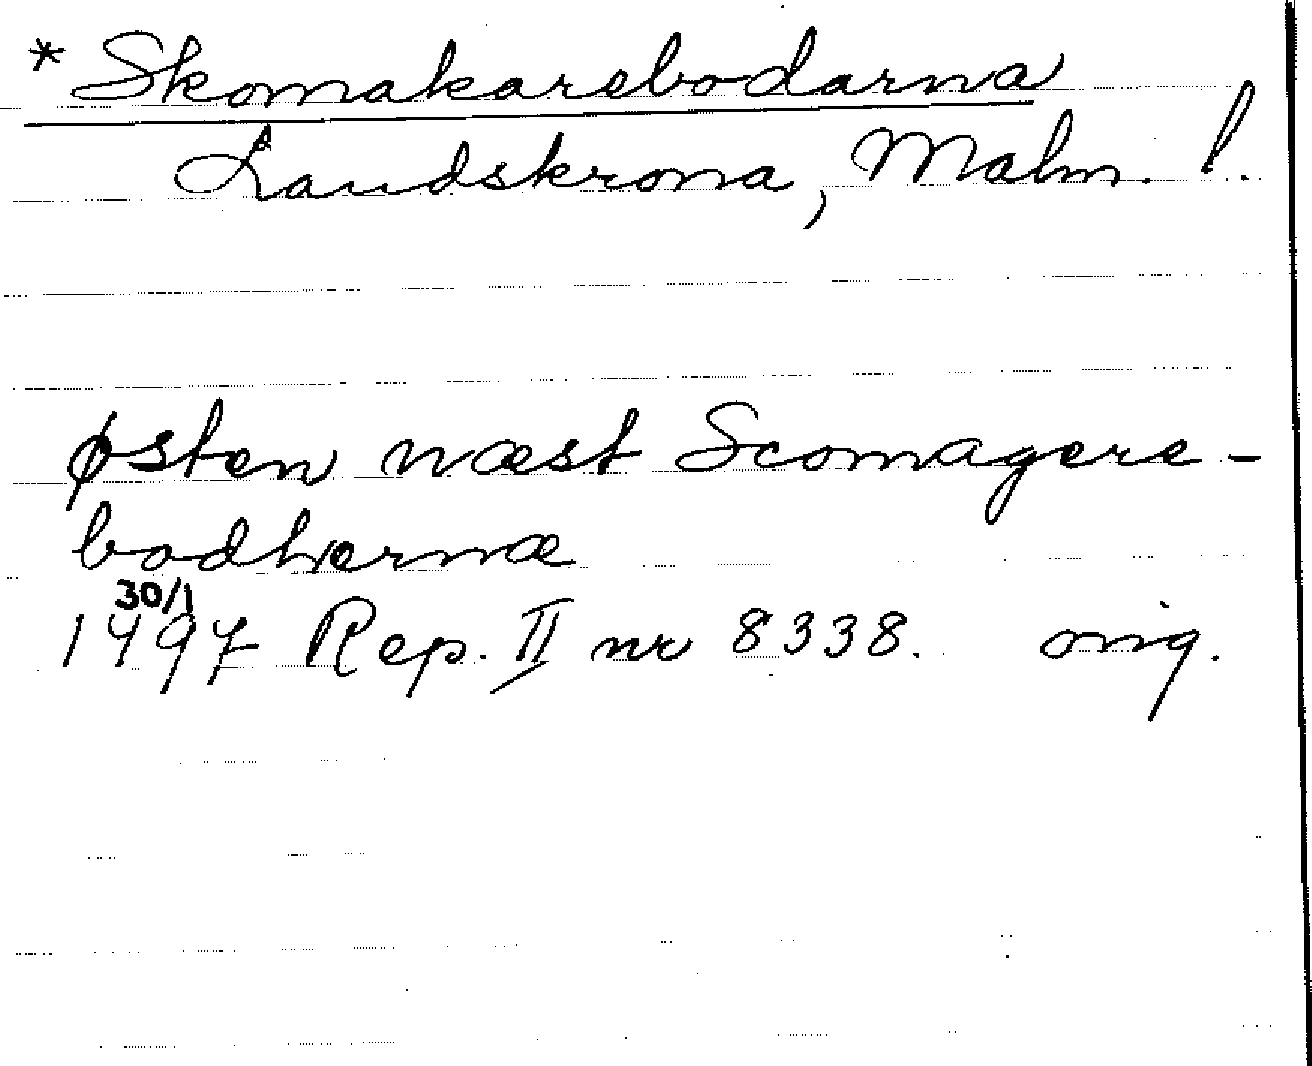 * Skomakarebodarna
Landskrona, Malm. l.
østen næst Scomagere-
bodhernæ
30/1
1497 Rep. II nr 8338. orig.